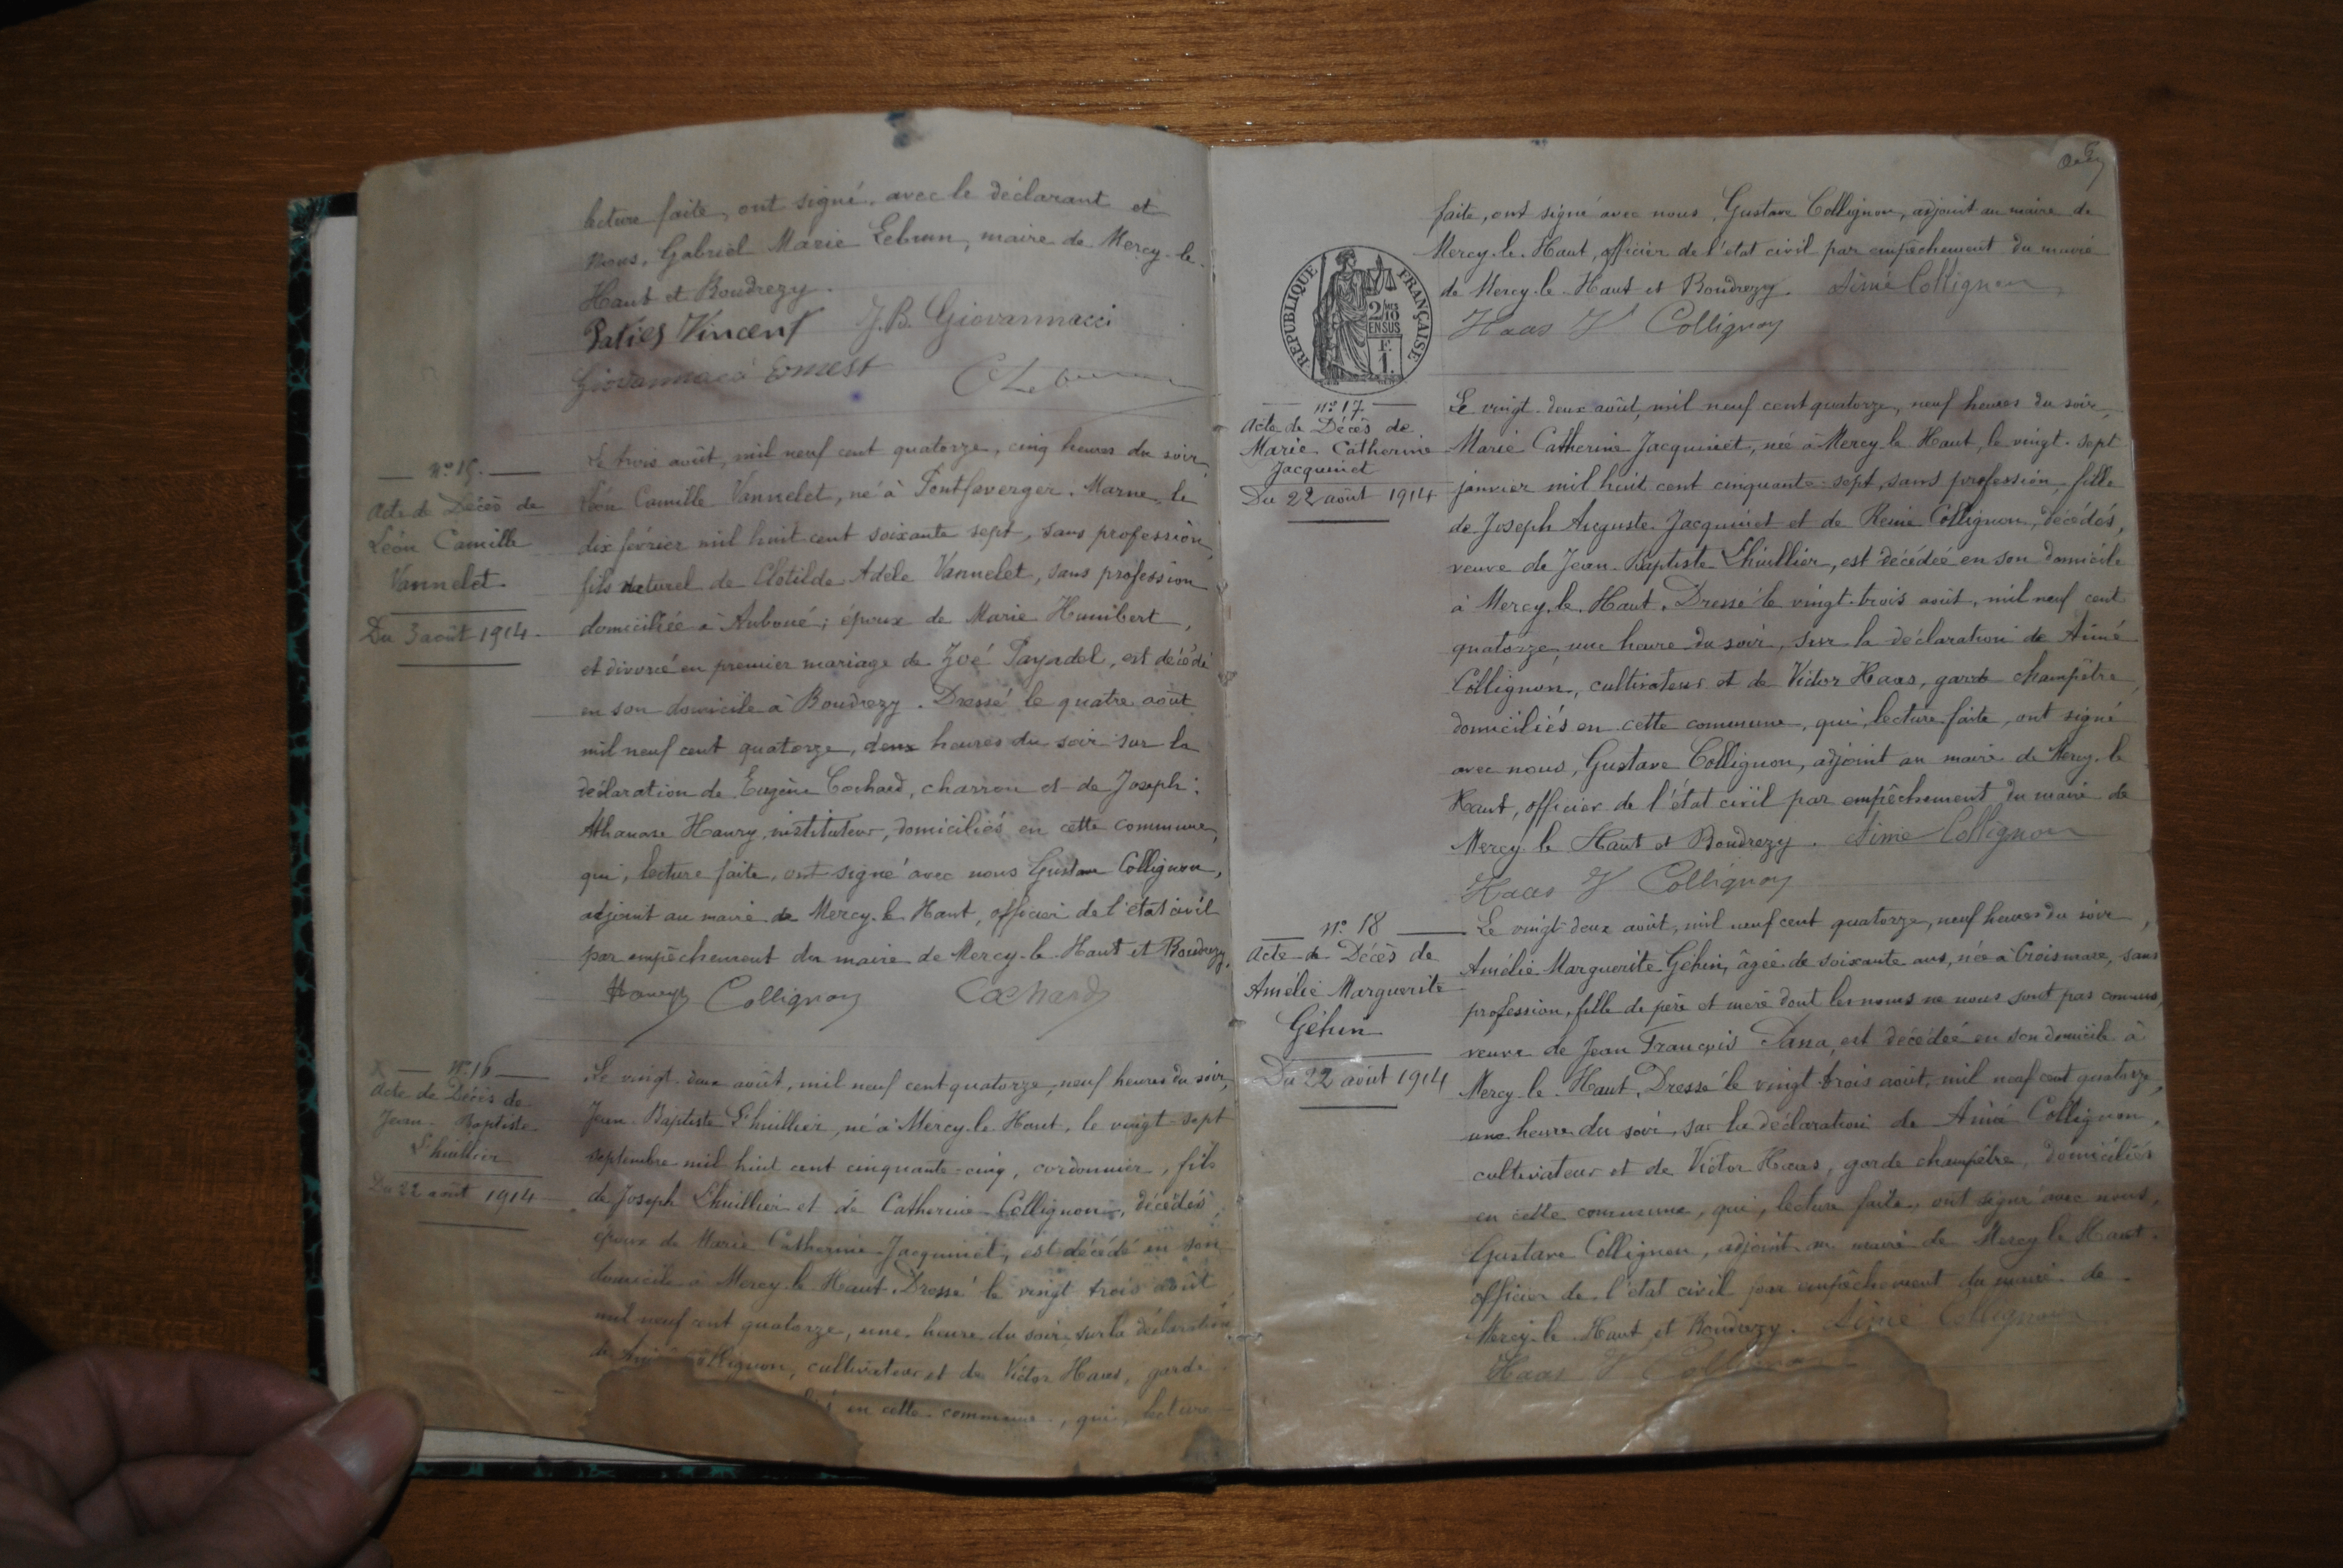 lecture faite, ont signé, avec le déclarant et
nous, Gabriel Marie Lebrun, maire de Mercy-le-
Haut et Boudrezy.
Paties Vincent J.B. Giovannacci
Giovannacci Ernest
n° 15.
Acte de Décès de
Léon Camille
Vannelet
Du 3 août 1914.
Le trois août, mil neuf cent quatorze, cinq heures du soir,
Léon Camille Vannelet, né à Pontfaverger, Marne, le
dix février mil huit cent soixante sept, sans profession,
fils naturel de Clotilde Adèle Vannelet, sans profession
domiciliée à Auboué; époux de Marie Humbert,
et divorcé en premier mariage de Zoé Payadel, est décédé
en son domicile à Boudrezy. Dressé le quatre août
mil neuf cent quatorze, deux heures du soir sur la
déclaration de Eugène Cochard, charron et de Joseph
Athanase Haury, instituteur, domiciliés en cette commune,
qui, lecture faite, ont signé avec nous Gustave Collignon,
adjoint au maire de Mercy-le-Haut, officier de l'état civil
par empêchement du maire de Mercy-le-Haut et Boudrezy.
Haury Collignon Cochard
n° 16
Acte de Décès de
Jean-Baptiste
Lhuillier
Du 22 août 1914
Le vingt-deux août, mil neuf cent quatorze, neuf heures du soir,
Jean-Baptiste Lhuillier, né à Mercy-le-Haut, le vingt-sept
septembre mil huit cent cinquante-cinq, cordonnier, fils
de Joseph Lhuillier et de Catherine Collignon, décédés,
époux de Marie Catherine Jacquinet, est décédé en son
domicile à Mercy-le-Haut. Dressé le vingt trois août
mil neuf cent quatorze, une heure du soir, sur la déclaration
de Aimé Collignon, cultivateur et de Victor Haas, garde
en cette commune, qui, lecture
faite, ont signé avec nous, Gustave Collignon, adjoint au maire de
Mercy-le-Haut, officier de l'état civil par empêchement du maire
de Mercy-le-Haut et Boudrezy. Aimé Collignon
Haas V Collignon
REPUBLIQUE FRANÇAISE
2/10
EN SUS
F.
1.
n° 17
Acte de Décès de
Marie Catherine
Jacquinet
Du 22 août 1914
Le vingt-deux août, mil neuf cent quatorze, neuf heures du soir,
Marie Catherine Jacquinet, née à Mercy-le-Haut, le vingt-sept
janvier mil huit cent cinquante-sept, sans profession, fille
de Joseph Auguste Jacquinet et de Reine Collignon, décédés,
veuve de Jean-Baptiste Lhuillier, est décédée en son domicile
à Mercy-le-Haut. Dressé le vingt-trois août, mil neuf cent
quatorze, une heure du soir, sur la déclaration de Aimé
Collignon, cultivateur et de Victor Haas, garde champêtre,
domiciliés en cette commune, qui, lecture faite, ont signé
avec nous, Gustave Collignon, adjoint au maire de Mercy-le-
Haut, officier de l'état civil par empêchement du maire de
Mercy-le-Haut et Boudrezy. Aimé Collignon
Haas V Collignon
n° 18
Acte de Décès de
Amélie Marguerite
Géhin
Du 22 août 1914
Le vingt-deux août, mil neuf cent quatorze, neuf heures du soir,
Amélie Marguerite Géhin, âgée de soixante ans, née à Croismare, sans
profession, fille de père et mère dont les noms ne nous sont pas connus,
veuve de Jean François Pana, est décédée en son domicile à
Mercy-le-Haut. Dressé le vingt-trois août, mil neuf cent quatorze,
une heure du soir, sur la déclaration de Aimé Collignon,
cultivateur et de Victor Haas, garde champêtre, domiciliés
en cette commune, qui, lecture faite, ont signé avec nous,
Gustave Collignon, adjoint au maire de Mercy-le-Haut,
officier de l'état civil par empêchement du maire de
Mercy-le-Haut et Boudrezy. Aimé Collignon
Haas V Collignon